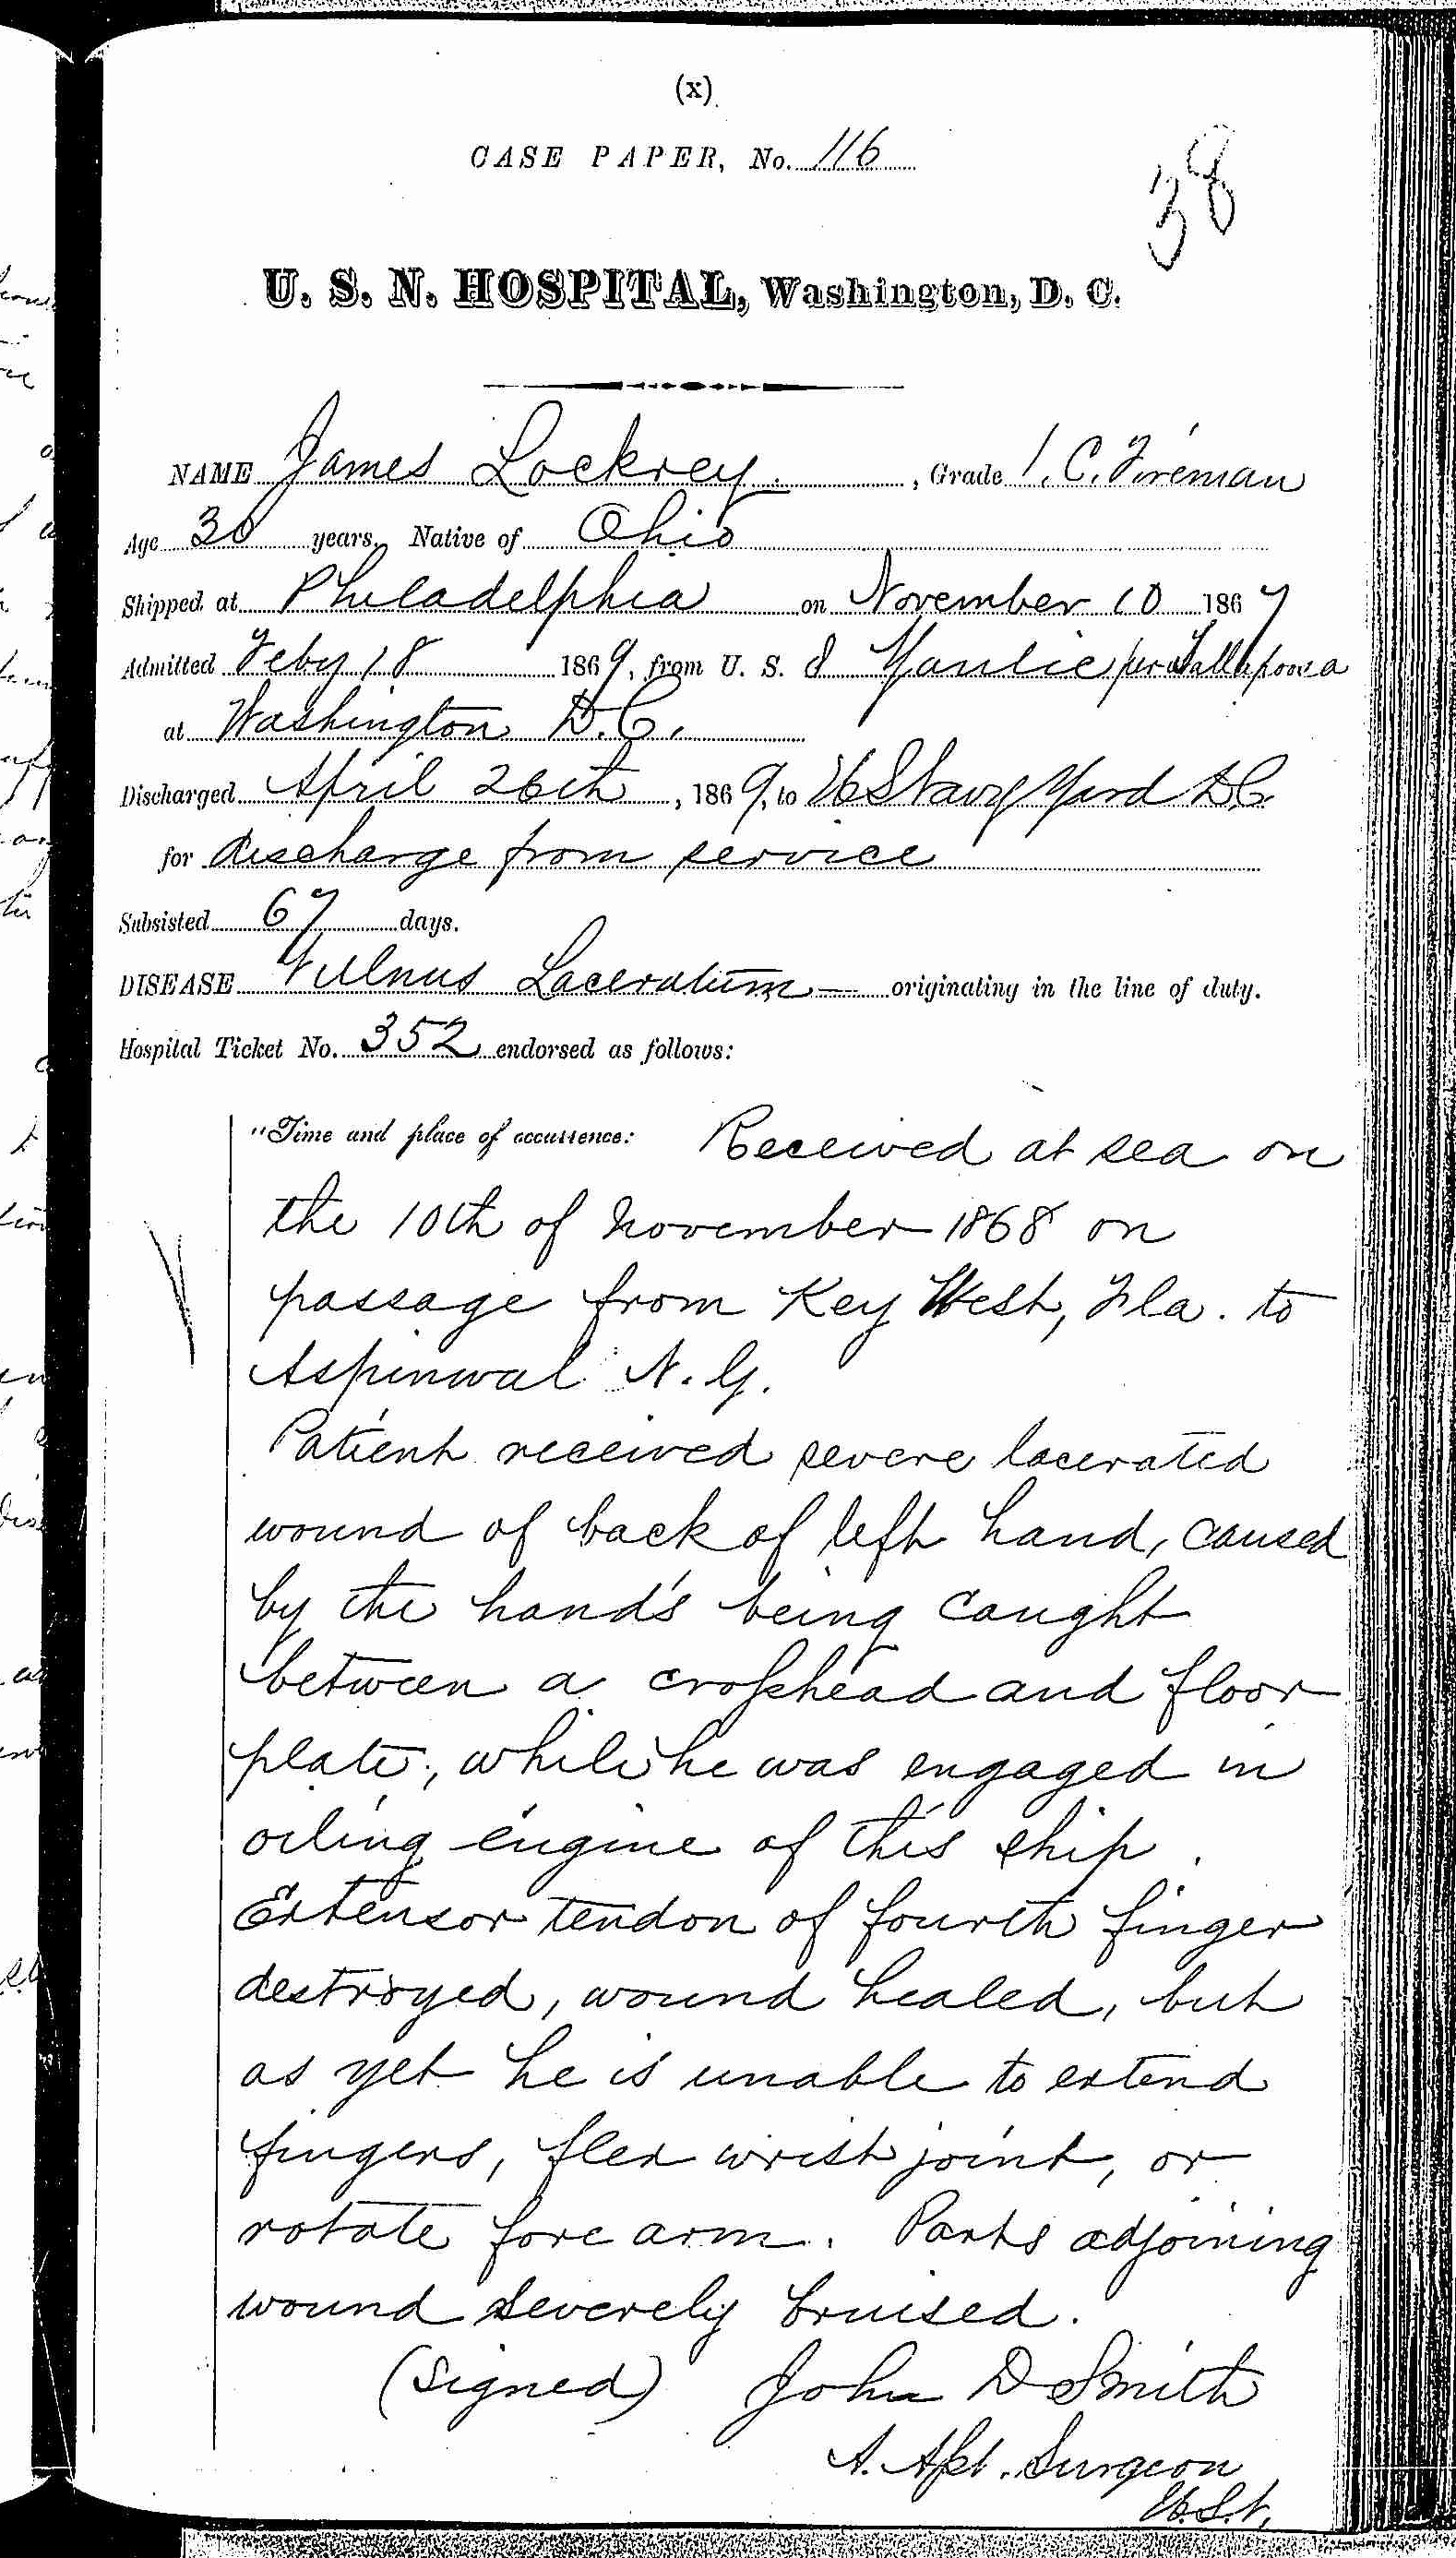 (x)
CASE PAPER, No. 116
38
U. S. N. HOSPITAL, Washington, D. C.
NAME James Lockrey. , Grade 1. C. Fireman
Age 30 years. Native of Ohio
Shipped at Philadelphia on November 10 1867
Admitted Feby 18 1869, from U. S. S Yantic per Tallapoosa
at Washington D.C.
Discharged April 26th , 1869, to US Navy Yard D.C.
for discharge from service
Subsisted 67 days.
DISEASE Vulnus Laceratum — originating in the line of duty.
Hospital Ticket No. 352 endorsed as follows:
"Time and place of occurrence: Received at sea on
the 10th of November 1868 on
passage from Key West, Fla. to
Aspinwal N. G.
Patient received severe lacerated
wound of back of left hand, caused
by the hand's being caught
between a crosshead and floor
plate, while he was engaged in
oiling engine of this ship.
Extensor tendon of fourth finger
destroyed, wound healed, but
as yet he is unable to extend
fingers, flex wrist joint, or
rotate fore arm. Parts adjoining
wound severely bruised.
(Signed) John D Smith
A. Asst. Surgeon
U.S.N.